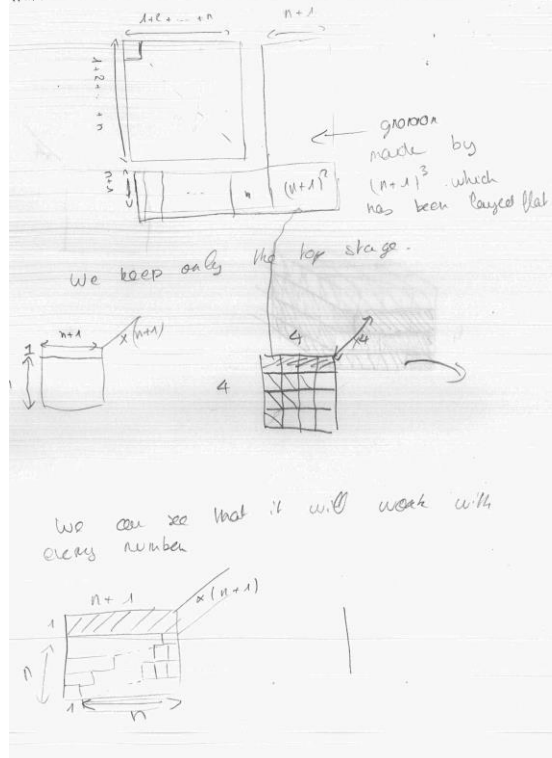 1+2+ ... +n
n+1
1+2+ ... +n
n+1
gnomon
made by
(n+1)³ which
has been layed flat
... n (n+1)²
We keep only the top stage.
n+1 x(n+1)
1
4 x4
4
We can see that it will work with
every number
n+1 x(n+1)
1
n
1 n